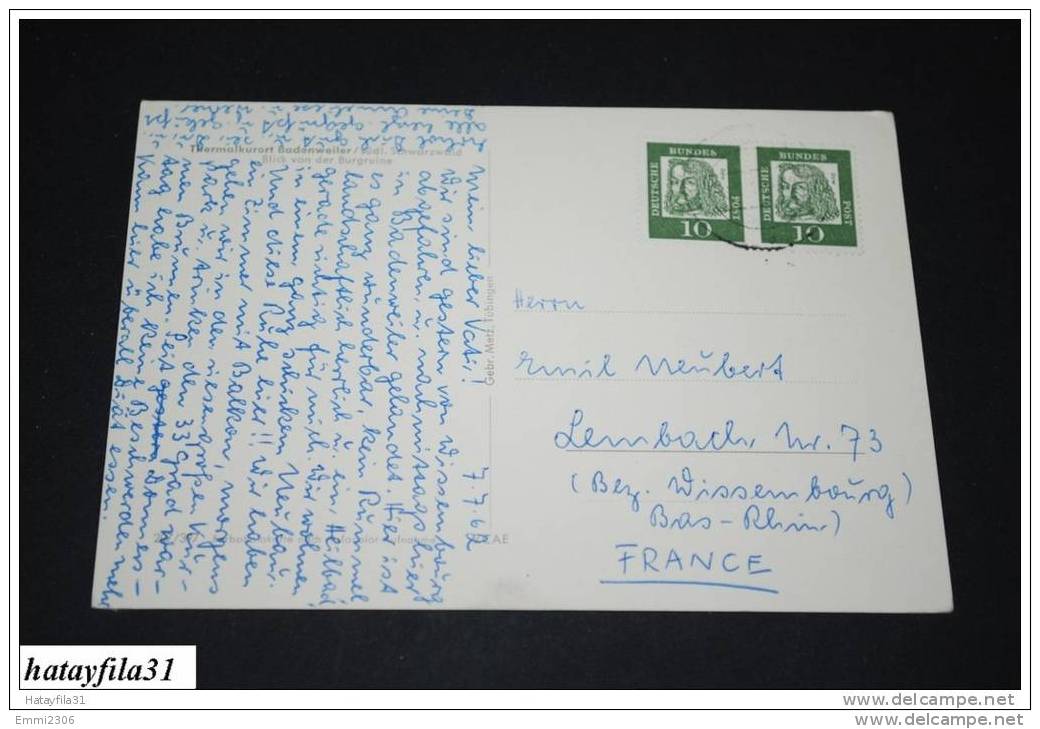 Thermalkurort Badenweiler/südl. Schwarzwald
Blick von der Burgruine
7.7.62
Mein lieber Vati!
Wir sind gestern von Wissembourg
abgefahren u. nachmittags hier
in Badenweiler gelandet. Hier ist
es ganz wunderbar, kein Rummel
landschaftlich herrlich u. ein Heilbad
gerade richtig für mich. Wir wohnen
in einem ganz schicken Neubau.
Und diese Ruhe hier!! Wir haben
ein Zimmer mit Balkon, morgens
gehen wir in den riesengroßen Kur-
park u. trinken den 33 grad war-
men Brunnen. Seit Donners-
tag habe ich keine Beschwerden mehr
kann hier überall Diät essen.
Gebr. Metz, Tübingen
DEUTSCHE
BUNDES
POST
10
DEUTSCHE
BUNDES
POST
10
Herrn
Emil Neubert
Lembach Nr. 73
(Bez. Wissembourg)
Bas-Rhin)
FRANCE
hatayfila31
Hatayfila31
www.delcampe.net
Emmi2306
www.delcampe.net